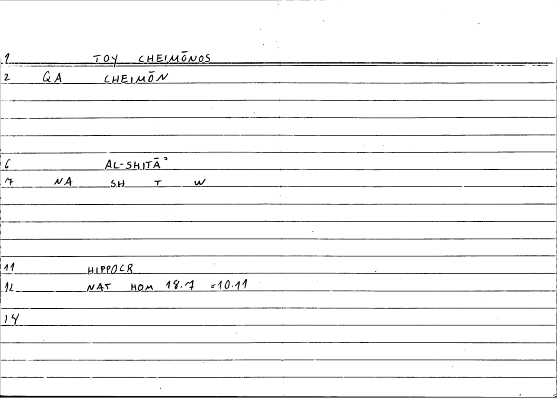 1 TOY CHEIMŌNOS
2 QA CHEIMŌN
6 AL-SHITĀʾ
7 NA SH T W
11 HIPPOCR
12 NAT HOM 18.7 =10.11
14